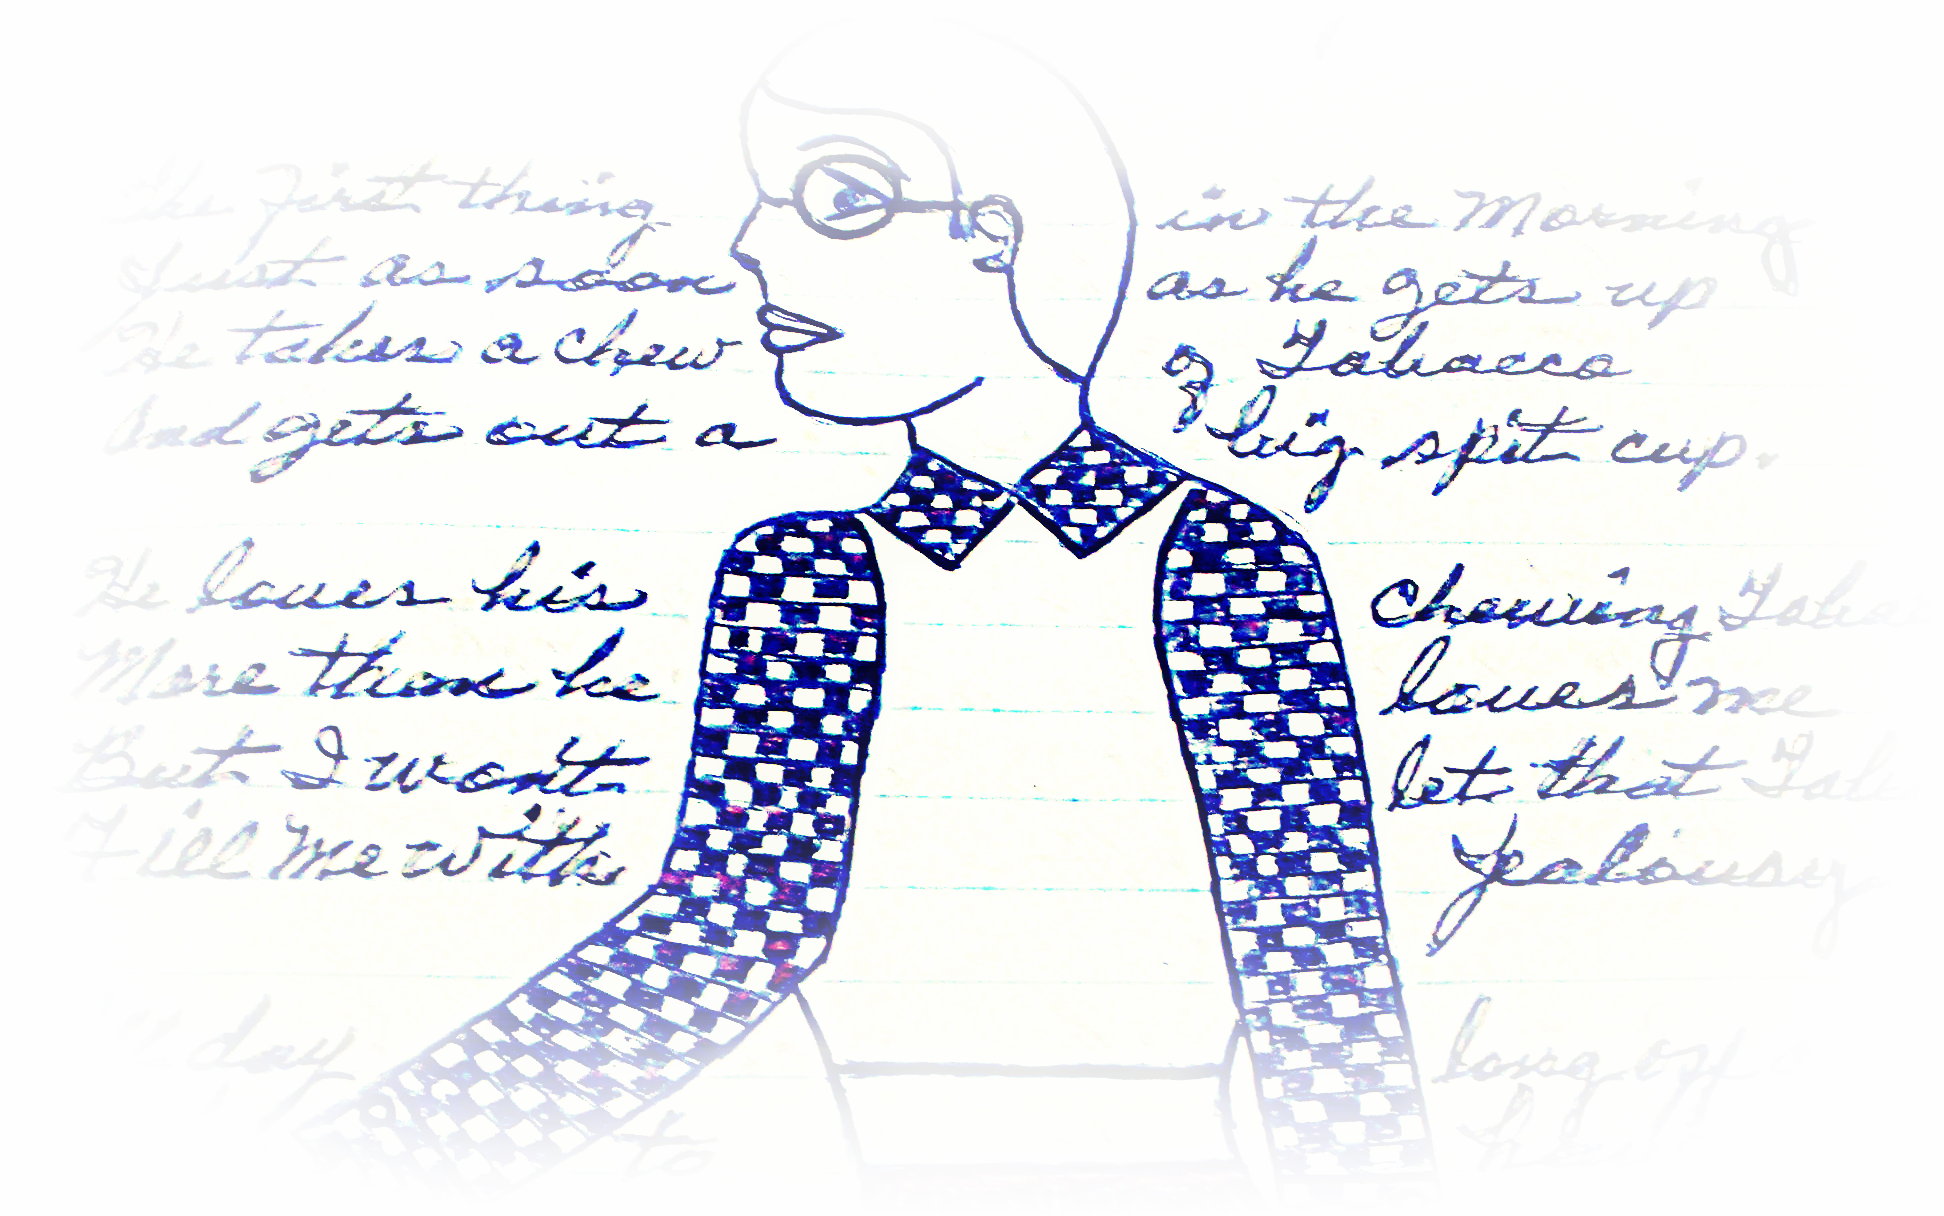 The First thing in the Morning
Just as soon as he gets up
He takes a chew of Tobacco
And gets out a big spit cup.
He loves his chewing Toba
More than he loves me
But I wont let that Tob
Fill me with Jealousy
day long
to